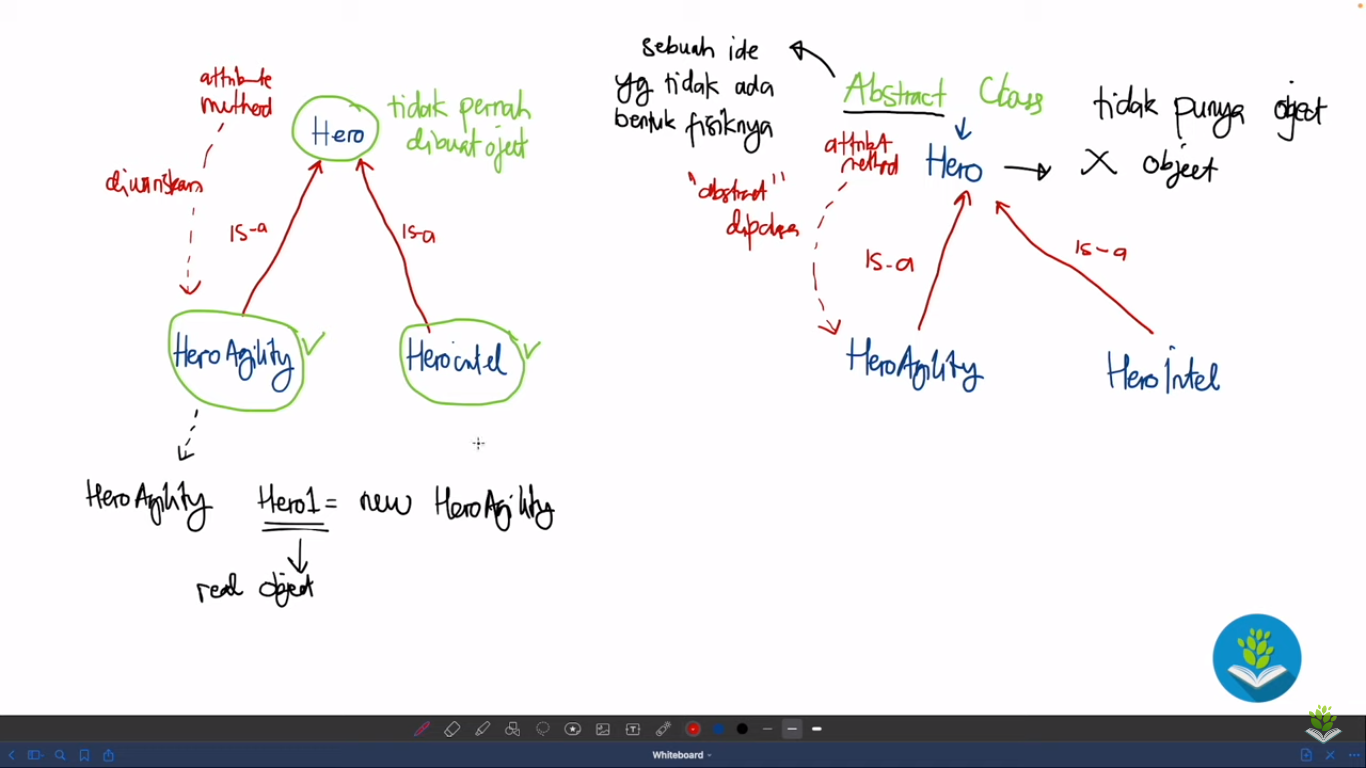 attribute
method
Hero
tidak pernah
dibuat oject
diwariskan
is-a
is-a
HeroAgility
Hero intel
HeroAgility Hero1 = new HeroAgility
real object
sebuah ide
yg tidak ada
bentuk fisiknya
Abstract Class
tidak punya object
attribut
method
Hero
X object
"abstract"
is-a
is-a
HeroAgility
HeroIntel
Whiteboard